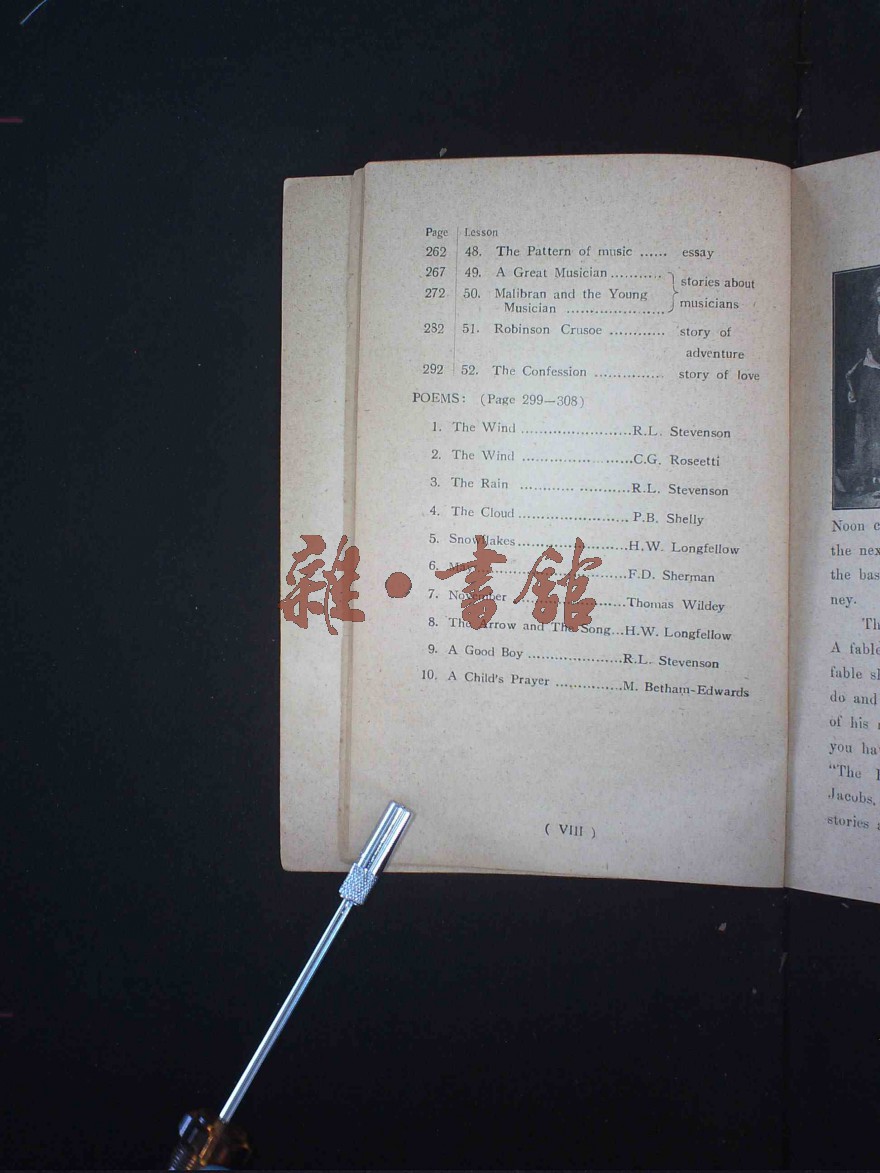 Page Lesson
262 48. The Pattern of music ...... essay
267 49. A Great Musician ........... stories about
272 50. Malibran and the Young
Musician ..................... musicians
282 51. Robinson Crusoe ............ story of
adventure
292 52. The Confession ............... story of love
POEMS: (Page 299—308)
1. The Wind ........................R.L. Stevenson
2. The Wind ........................C.G. Roseetti
3. The Rain ........................R.L. Stevenson
4. The Cloud ........................P.B. Shelly
5. Snowflakes........................H.W. Longfellow
6. ........................F.D. Sherman
7. November ........................Thomas Wildey
8. The Arrow and The Song...H.W. Longfellow
9. A Good Boy .....................R.L. Stevenson
10. A Child's Prayer ...............M. Betham-Edwards
( VIII )
雜·書館
Noon
the
the
ney.
A
fable
do and
of his
you
"The
Jacobs,
stories